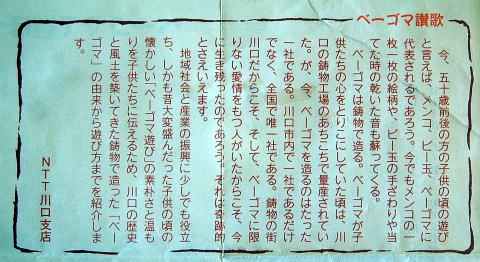 ベーゴマ讃歌
今、五十歳前後の方の子供の頃の遊び
と言えば、メンコ、ビー玉、ベーゴマに
代表されるであろう。今でもメンコの一
枚一枚の絵柄や、ビー玉の手ざわりや当
てた時の乾いた音も蘇ってくる。
ベーゴマは鋳物で造る。ベーゴマが子
供たちの心をとりこにしていた頃は、川
口の鋳物工場のあちこちで量産されてい
た。が、今、ベーゴマを造るのはたった
一社である。川口市内で一社であるだけ
でなく、全国で唯一社である。鋳物の街
川口だからこそ、そして、ベーゴマに限
りない愛情をもつ人がいたからこそ、今
に生き残ったのであろう。それは奇跡的
とさえいえます。
地域社会と産業の振興に少しでも役立
ち、しかも昔大変盛んだった子供の頃の
懐かしい「ベーゴマ遊び」の素朴さと温も
りを子供たちに伝えるため、川口の歴史
と風土を築いてきた鋳物で造った「ベー
ゴマ」の由来から遊び方までを紹介しま
す。
NTT川口支店